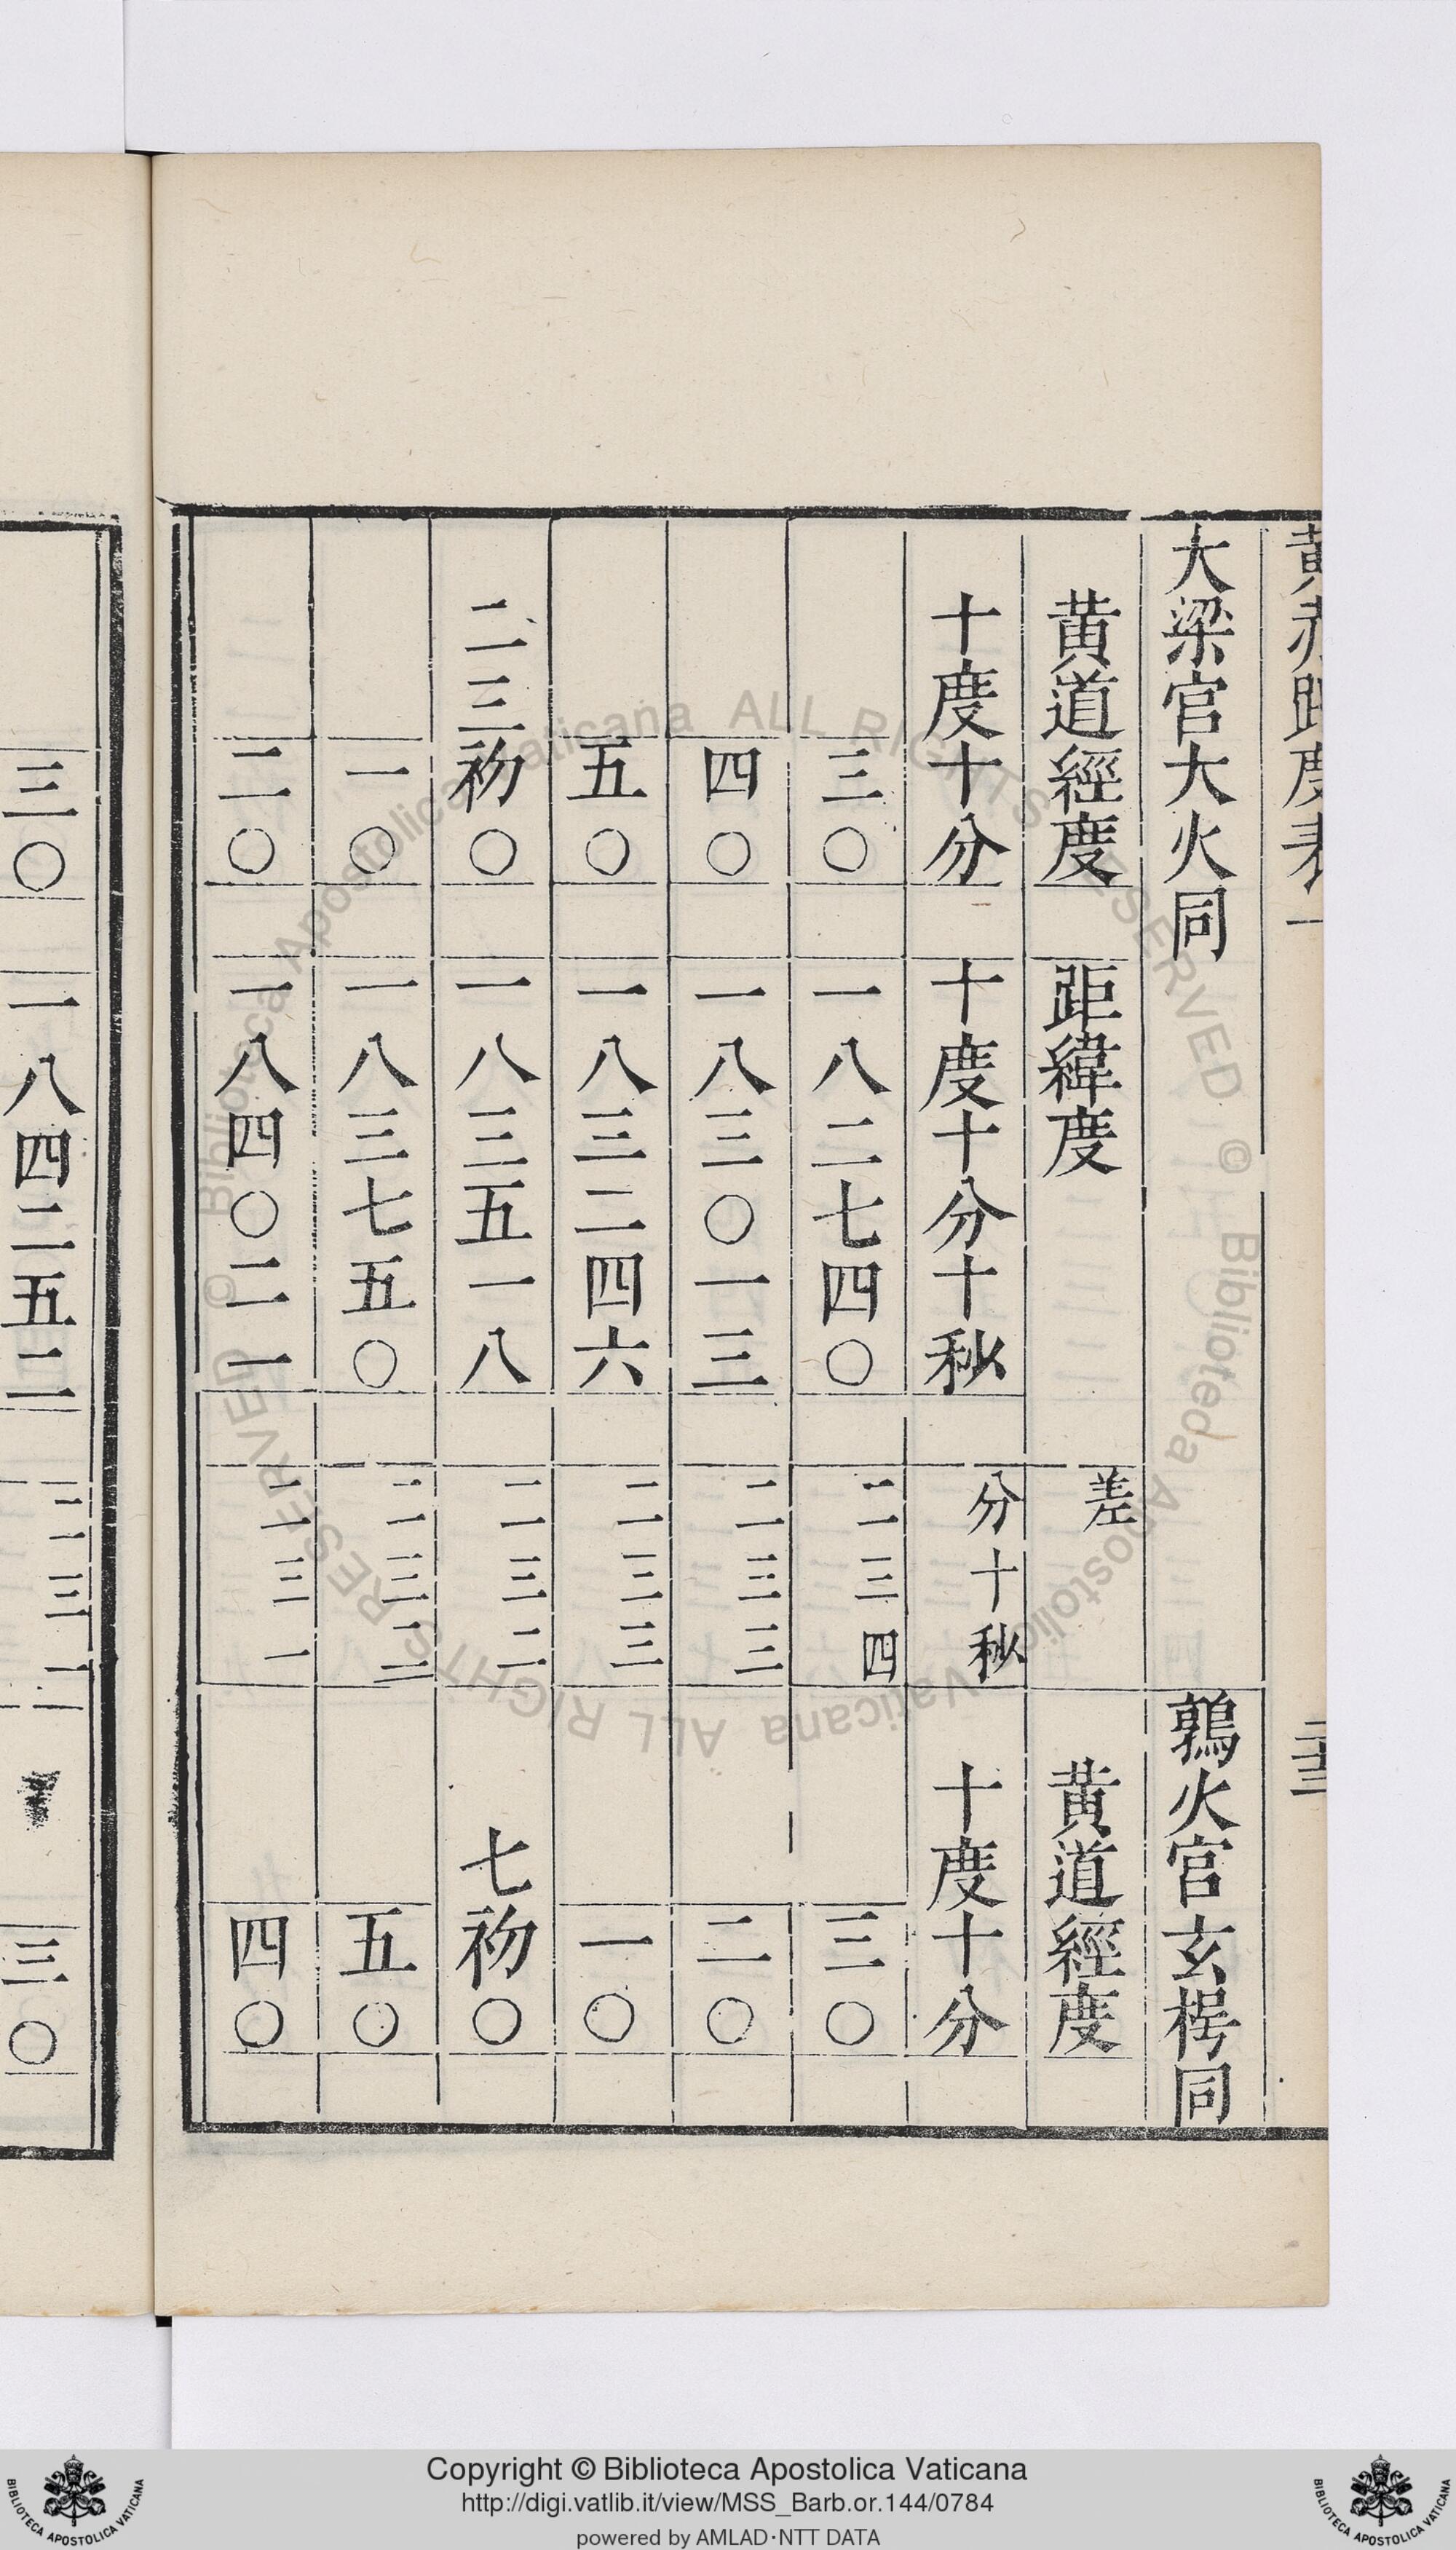 黃赤距度表一 二十三
大梁官大火同 鶉火官玄枵同
黃道經度 距緯度 差 黃道經度
十度十分 十度十分十秒 分十秒 十度十分
三〇 一八二七四〇 二二三四 三〇
四〇 一八三〇一三 二二三三 二〇
五〇 一八三二四六 二二三三 一〇
二三初〇 一八三五一八 二二三二 七初〇
一〇 一八三七五〇 二二三二 五〇
二〇 一八四〇二一 二二三一 四〇
三〇 一八四二五二 二二三一 三〇
Biblioteca Apostolica Vaticana ALL RIGHTS RESERVED © Biblioteca Apostolica Vaticana ALL RIGHTS RESERVED ©
BIBLIOTECA APOSTOLICA VATICANA
Copyright © Biblioteca Apostolica Vaticana
http://digi.vatlib.it/view/MSS_Barb.or.144/0784
powered by AMLAD·NTT DATA
BIBLIOTECA APOSTOLICA VATICANA